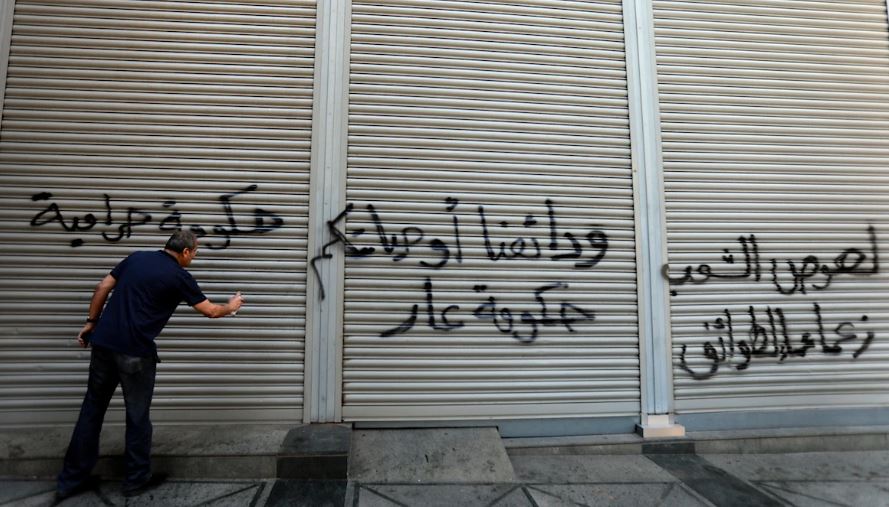 لصوص الشعب
زعماء الطوائف
ودائعنا أو حياتكم
حكومة عار
حكومة حرامية